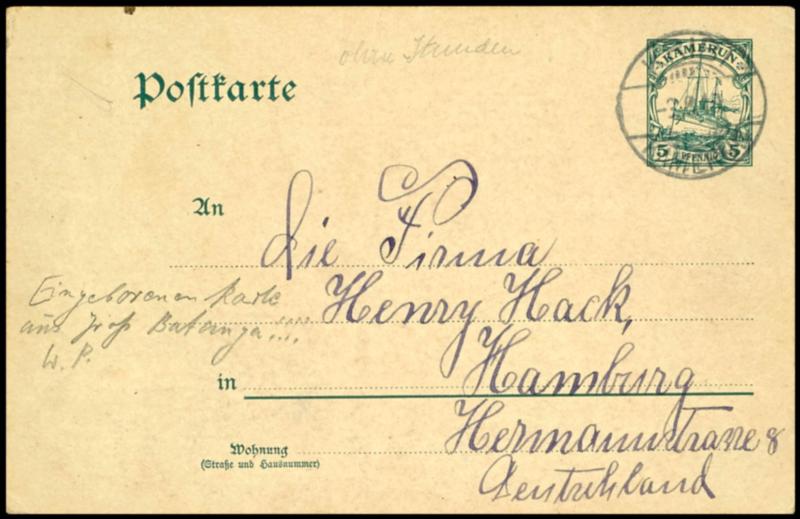 ohne Stunden
Postkarte
KAMERUN
5 PFENNIG 5
An
Die Firma
Henry Hack,
Eingeborenen Karte
aus Groß Batanga!!!!
W. P.
in Hamburg
Hermannstrasse 8
Wohnung
(Straße und Hausnummer)
Deutschland